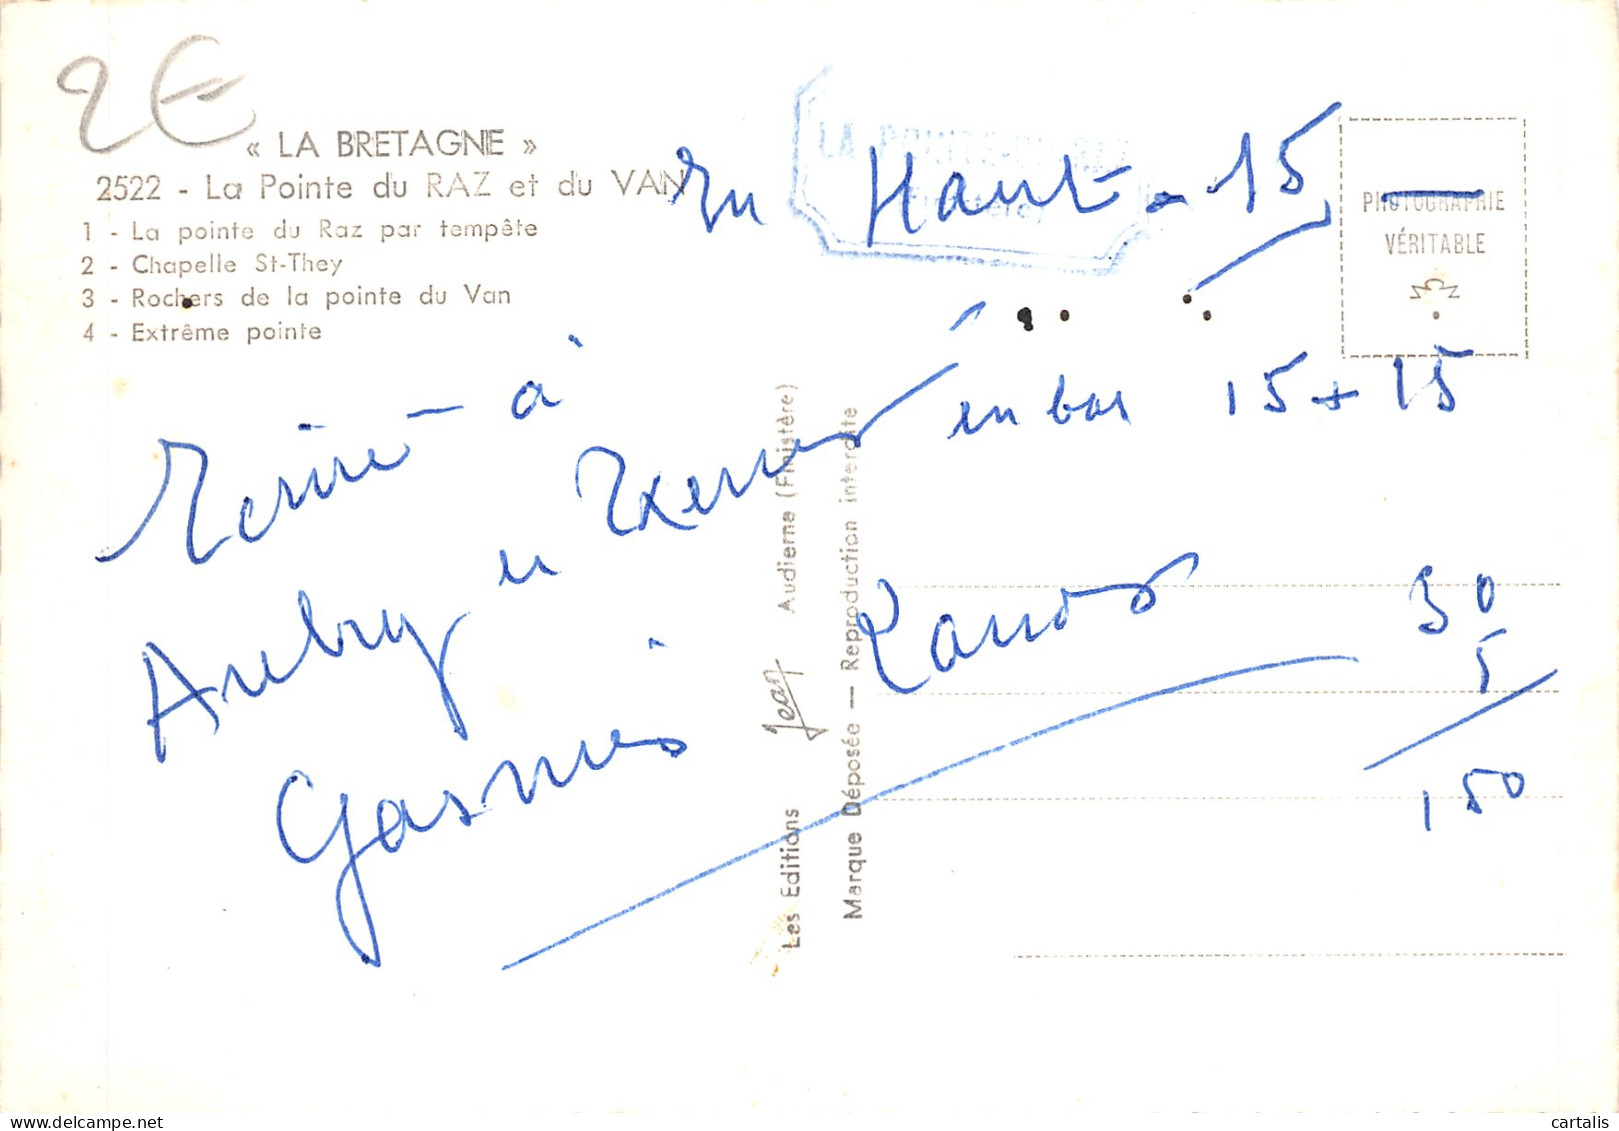 2€
« LA BRETAGNE »
2522 - La Pointe du RAZ et du VAN
1 - La pointe du Raz par tempête
2 - Chapelle St-They
3 - Rochers de la pointe du Van
4 - Extrême pointe
LA POINTE-DU-RAZ
(Finistère)
En Haut - 15
PHOTOGRAPHIE
VÉRITABLE
en bas 15 + 15
Ecrire - à
Aubry en
Gasnis
30
5
150
Les Editions Jean Audierne (Finistère)
Marque Déposée — Reproduction interdite
cartalis